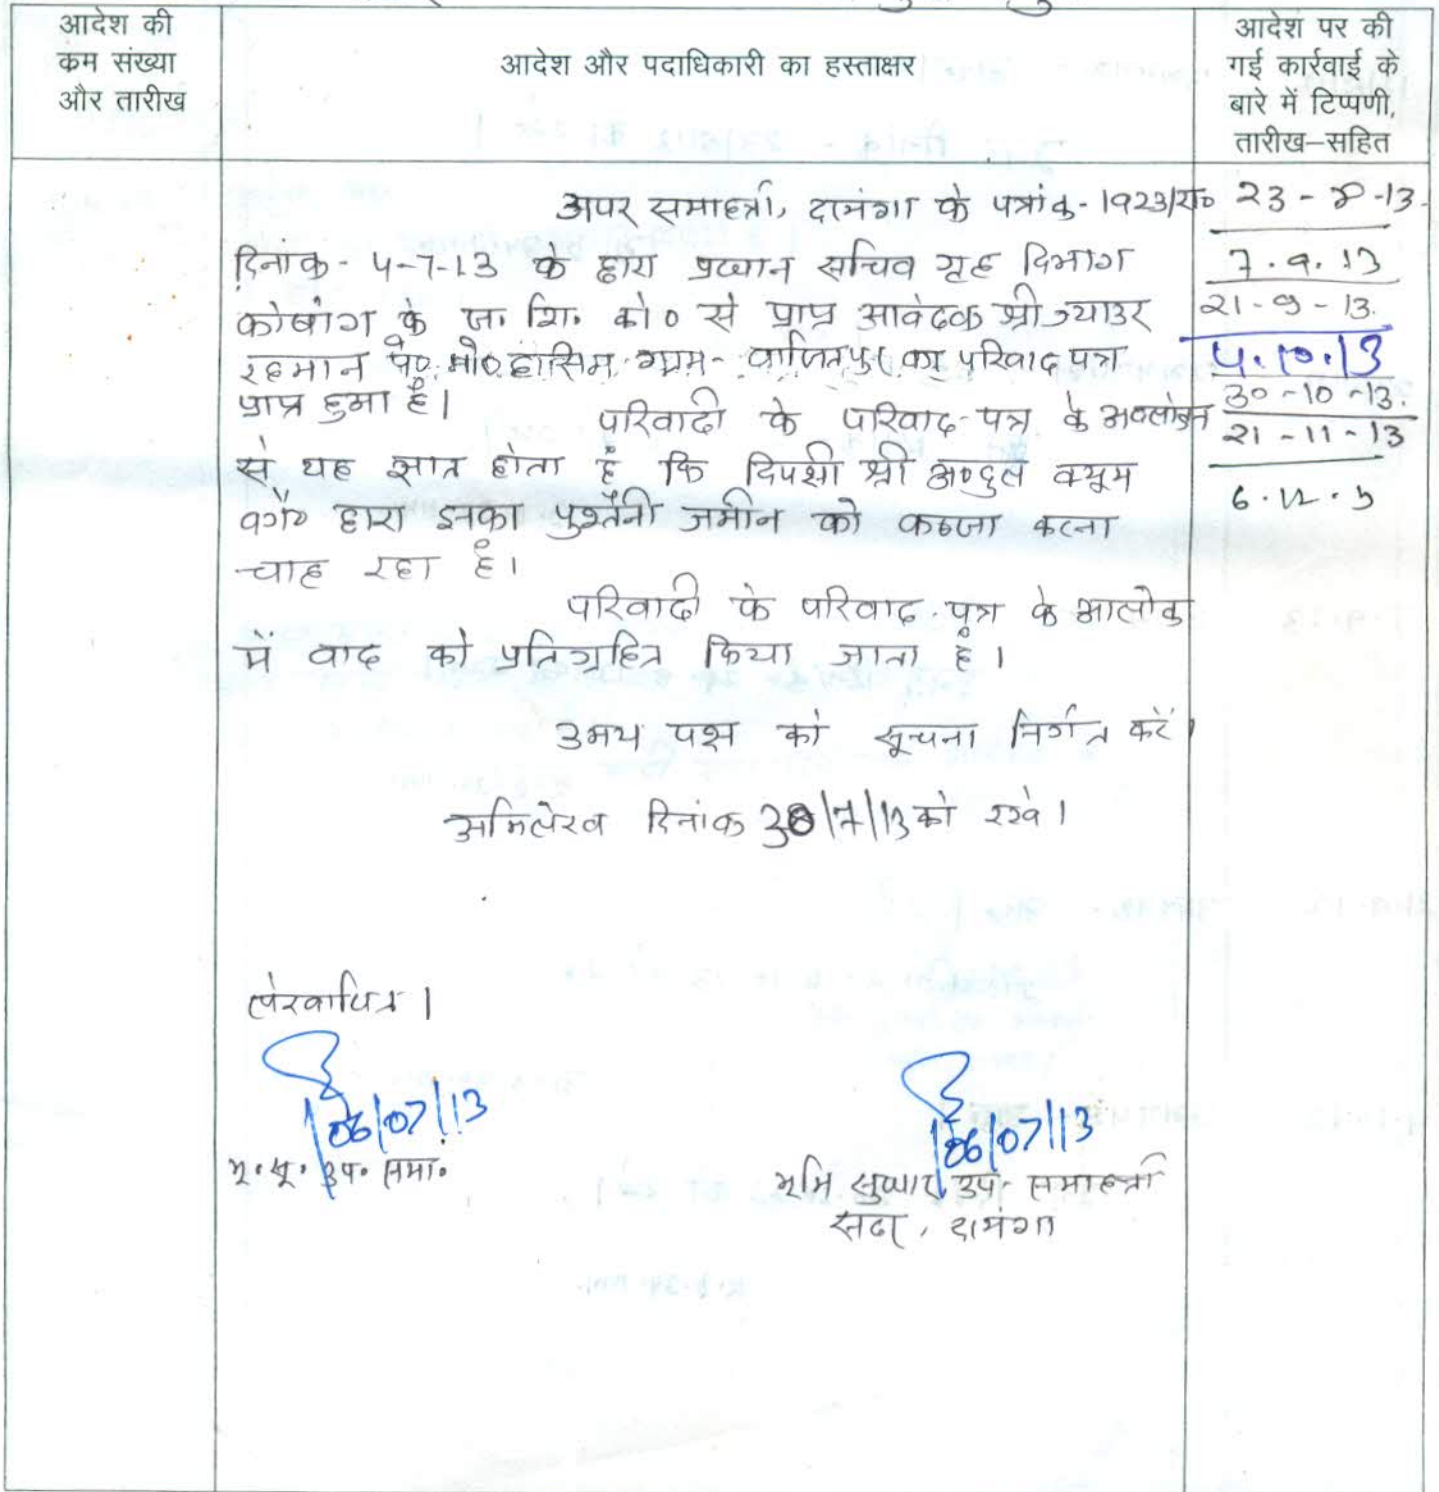 आदेश की
कम संख्या
और तारीख
आदेश और पदाधिकारी का हस्ताक्षर
आदेश पर की
गई कार्रवाई के
बारे में टिप्पणी,
तारीख–सहित
अपर समाहर्त्ता, दरभंगा के पत्रांक - 1923/रा०
दिनांक - 4-7-13 के द्वारा प्रधान सचिव गृह विभाग
कोषांग के ज. शि. को० से प्राप्त आवेदक श्री
रहमान पे० मो० हासिम ग्राम - वाजितपुर का परिवाद पत्र
प्राप्त हुआ है।
परिवादी के परिवाद-पत्र के अवलोकन
से यह ज्ञात होता है कि विपक्षी श्री अब्दुल कयूम
वगै० द्वारा इनका पुश्तैनी जमीन को कब्जा करना
चाह रहा है।
परिवादी के परिवाद-पत्र के आलोक
में वाद को प्रतिग्रहित किया जाता है।
उभय पक्ष को सूचना निर्गत करें।
अभिलेख दिनांक 30/7/13 को रखे।
लेखापित।
06/07/13
भू. सू. उप. समा.
06/07/13
भूमि सुधार उप समाहर्त्ता
सदर, दरभंगा
23-8-13
7.9.13
21-9-13.
4.10.13
30-10-13.
21-11-13